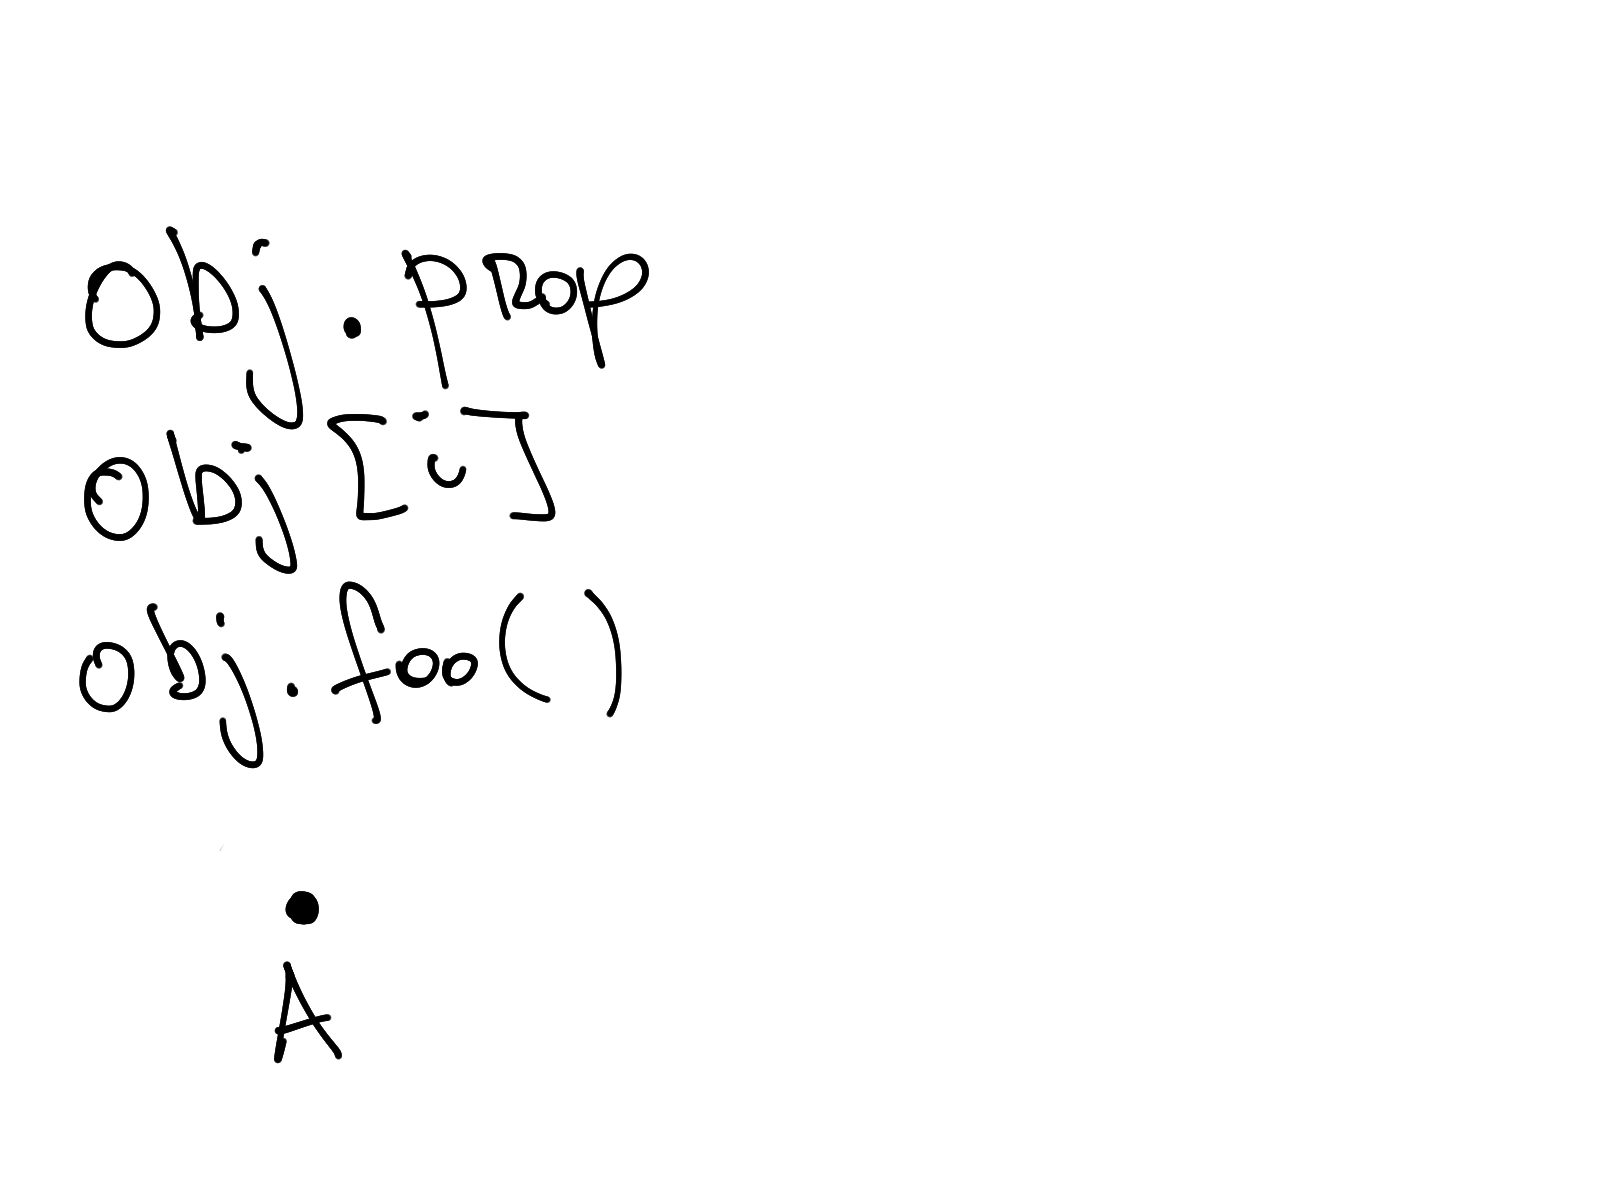 obj.prop
obj[i]
obj.foo()
A